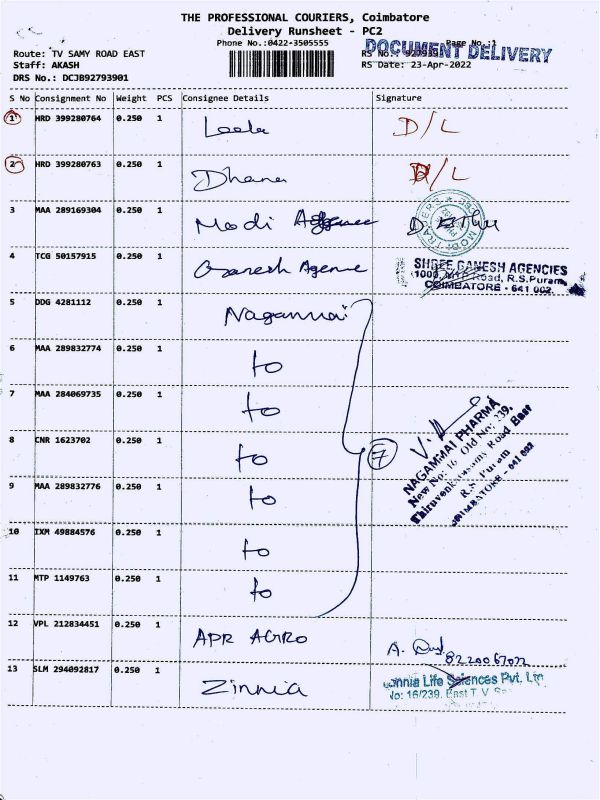 THE PROFESSIONAL COURIERS, Coimbatore
Delivery Runsheet - PC2
Phone No.:0422-3505555
Page No.:1
DOCUMENT DELIVERY
Route: TV SAMY ROAD EAST
RS No.: 927939
Staff: AKASH
RS Date: 23-Apr-2022
DRS No.: DCJB92793901
S No Consignment No Weight PCS Consignee Details Signature
1 HRD 399280764 0.250 1 Leela D/L
2 HRD 399280763 0.250 1 Dhana D/L
3 MAA 289169304 0.250 1 Modi
4 TCG 50157915 0.250 1 Ganesh Agence
SHREE GANESH AGENCIES
Road, R.S.Puram,
COIMBATORE - 641 002.
5 DDG 4281112 0.250 1 Nagammai
6 MAA 289832774 0.250 1 to
7 MAA 284069735 0.250 1 to
8 CNR 1623702 0.250 1 to
7
NAGAMMAI PHARMA
New No: 16, Old No: 239,
Thiruvenkatasamy Road East
R.S. Puram
COIMBATORE - 641 002
9 MAA 289832776 0.250 1 to
10 IXM 49884576 0.250 1 to
11 MTP 1149763 0.250 1 to
12 VPL 212834451 0.250 1 APR AGRO A.
8220067022
13 SLM 294092817 0.250 1 Zinnia
Zinnia Life Sciences Pvt. Ltd
No: 16/239, East T. V.